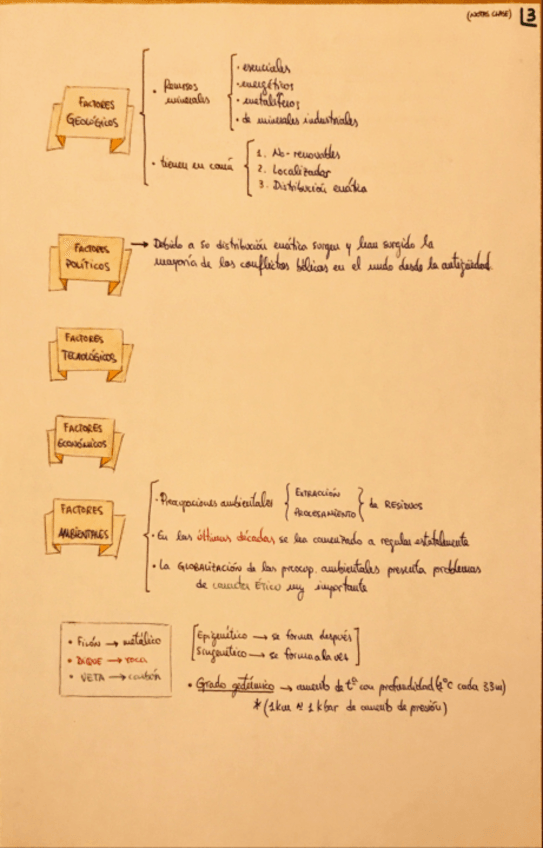 (NOTAS CLASE) 3
FACTORES
GEOLÓGICOS
• Recursos
minerales
• esenciales
• energéticos
• metalíferos
• de minerales industriales
• tienen en común
1. No-renovables
2. Localizador
3. Distribución errática
FACTORES
POLÍTICOS
→ Debido a su distribución errática surgen y han surgido la
mayoría de los conflictos bélicos en el mundo desde la antigüedad.
FACTORES
TECNOLÓGICOS
FACTORES
ECONÓMICOS
FACTORES
AMBIENTALES
• Preocupaciones ambientales
EXTRACCIÓN
PROCESAMIENTO
de RESIDUOS
• En las últimas décadas se ha comenzado a regular estatalmente
• La GLOBALIZACIÓN de las preocup. ambientales presenta problemas
de caracter Ético muy importante
• FILÓN → metálico
• DIQUE → roca
• VETA → carbón
Epigenético → se forma después
Singenético → se forma a la vez
• Grado geotérmico → aumento de tº con profundidad (1ºC cada 33m)
* (1km ≈ 1 kbar de aumento de presión)